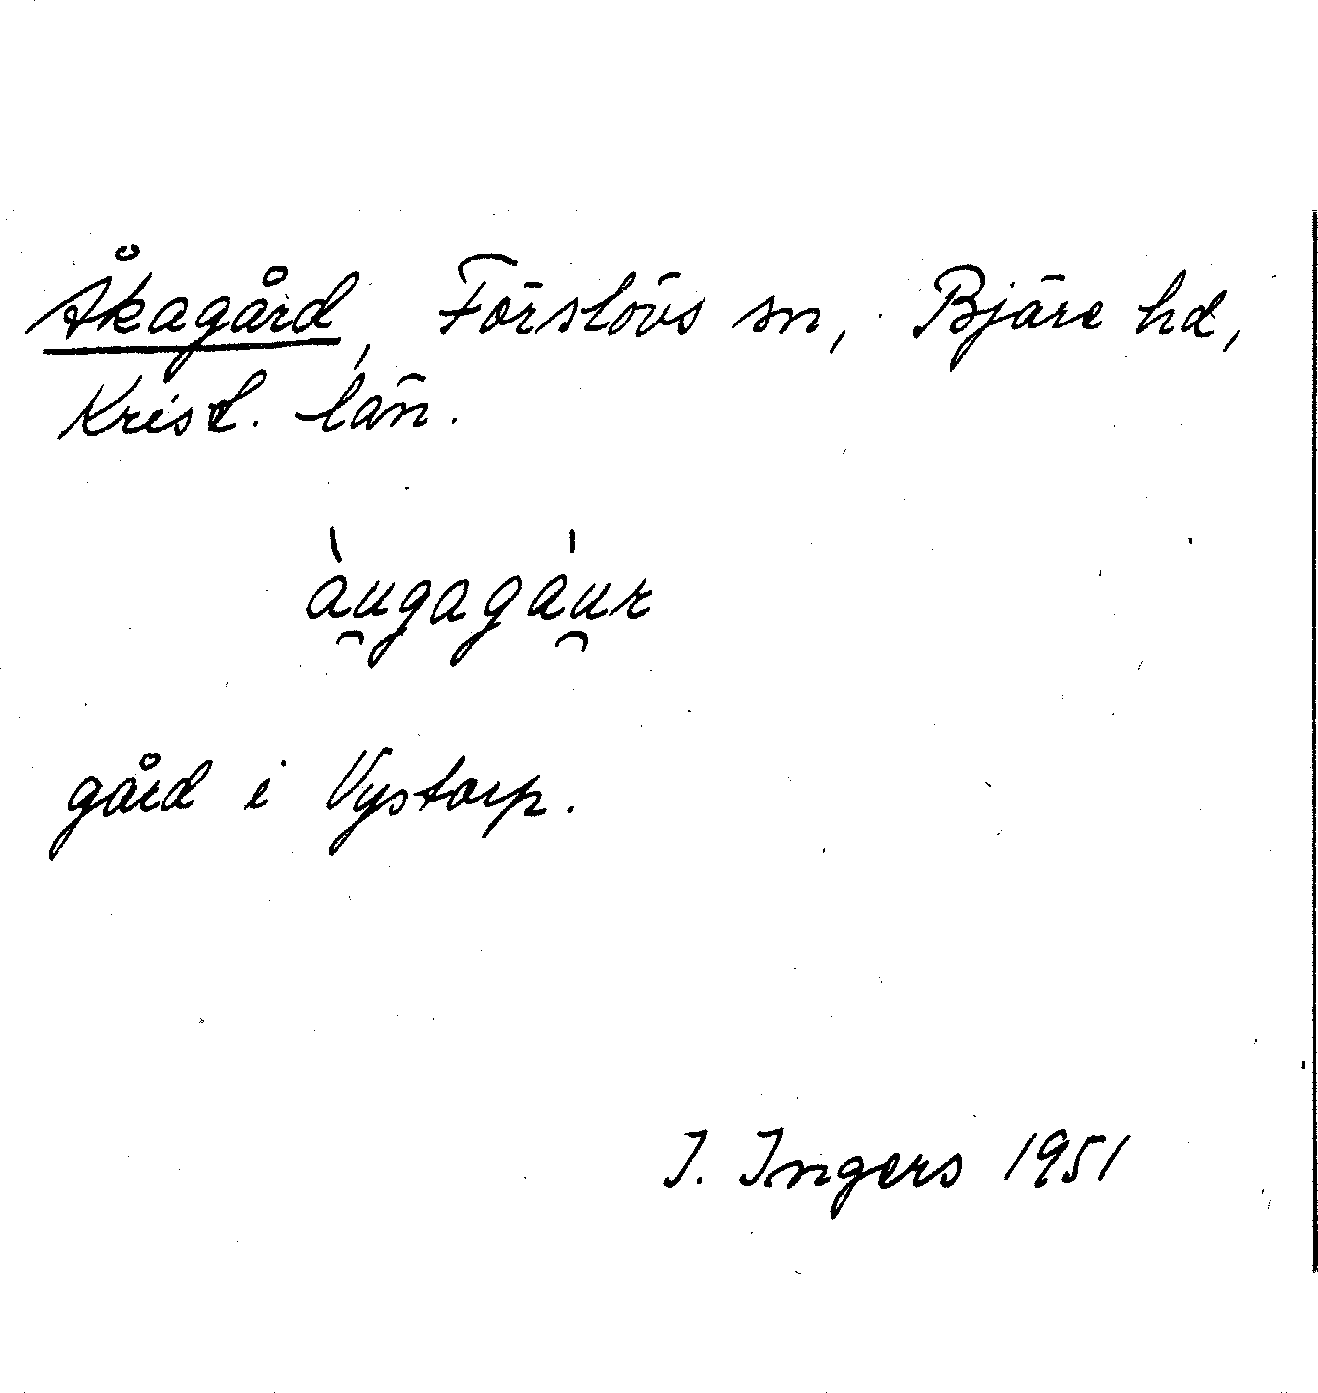 Åkagård, Förslövs sn, Bjäre hd,
Krist. län.
àu̯gagáu̯r
gård i Vystorp.
I. Ingers 1951